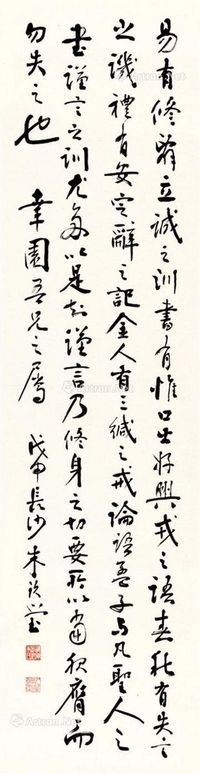 易有修辭立誠之訓書有惟口出好興戎之語春秋有失言
之譏禮有安定辭之記金人有三緘之戒論語孟子与凡聖人之
書謹言之訓尤多以是知謹言乃修身之切要所以當服膺而
勿失之也 園吾兄之屬 戊申長沙朱玖瑩